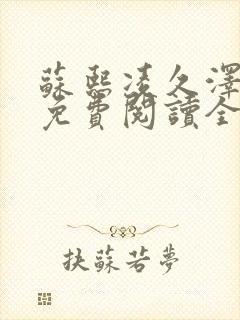 蘇熙凌久澤
免費閱讀全
扶蘇若夢